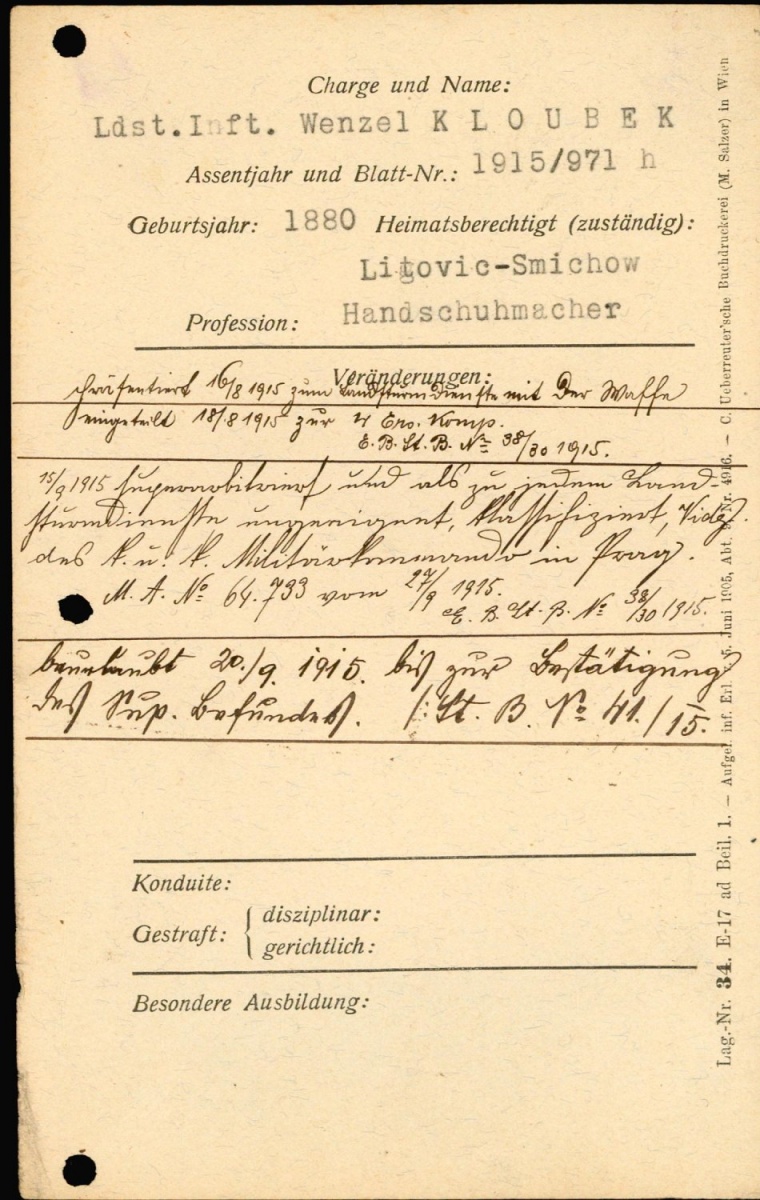 Charge und Name:
Ldst.Inft. Wenzel K L O U B E K
Assentjahr und Blatt-Nr.: 1915/971 h
Geburtsjahr: 1880 Heimatsberechtigt (zuständig):
Litovic-Smichow
Profession: Handschuhmacher
Veränderungen:
Präsentiert 16/8 1915 zum Landsturmdienste mit der Waffe
eingeteilt 18/8 1915 zur 4 Ers. Komp.
E. B. St. B. No 38/30 1915.
15/9 1915 superarbitriert und als zu jedem Land-
sturmdienste ungeeignet, klassifiziert, Vidg.
des k. u. k. Militärkommando in Prag.
M. A. No 64.793 vom 27/9 1915.
E. B. St. B. No 38/30 1915.
beurlaubt 20./9. 1915. bis zur Bestätigung
des Sup. Befundes. /: St. B. No 41./15.
Konduite:
Gestraft: { disziplinar:
gerichtlich:
Besondere Ausbildung:
Lag.-Nr. 34. E-17 ad Beil. 1. — Aufgel. inf. Erl. Juni 1905, Abt. Nr. 4916. — C. Ueberreuter'sche Buchdruckerei (M. Salzer) in Wien